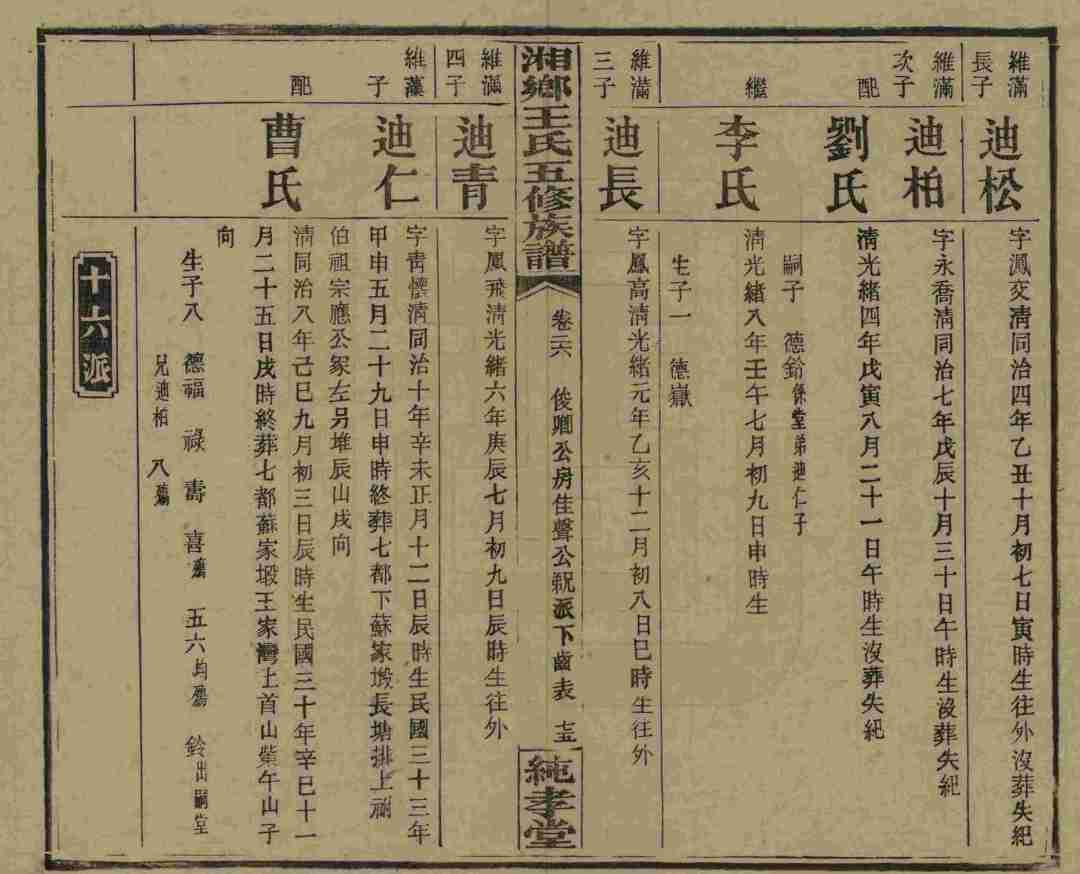 維滿長子
迪松
字鳳交清同治四年乙丑十月初七日寅時生往外沒葬失紀
維滿次子
迪柏
字永喬清同治七年戊辰十月三十日午時生沒葬失紀
配
劉氏
清光緒四年戊寅八月二十一日午時生沒葬失紀
嗣子 德鈴係堂弟迪仁子
繼
李氏
清光緒八年壬午七月初九日申時生
生子一 德嶽
維滿三子
迪長
字鳳高清光緒元年乙亥十二月初八日巳時生往外
湘鄉王氏五修族譜
卷六 俊卿公房佳聲公派下齒表
純孝堂
維滿四子
迪青
字鳳飛清光緒六年庚辰七月初九日辰時生往外
維藻子
迪仁
字青懷清同治十年辛未正月十二日辰時生民國三十三年
甲申五月二十九日申時終葬七都下蘇家塅長塘排上
伯祖宗應公冢左另堆辰山戌向
配
曹氏
清同治八年己巳九月初三日辰時生民國三十年辛巳十一
月二十五日戌時終葬七都蘇家塅王家灣上首山午山子
向
生子八 德福 祿 壽 喜 五六均 鈴出嗣堂
兄迪柏 八
十六派